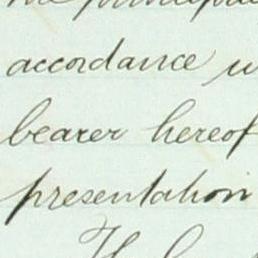 accordance
bearer hereof
presentation